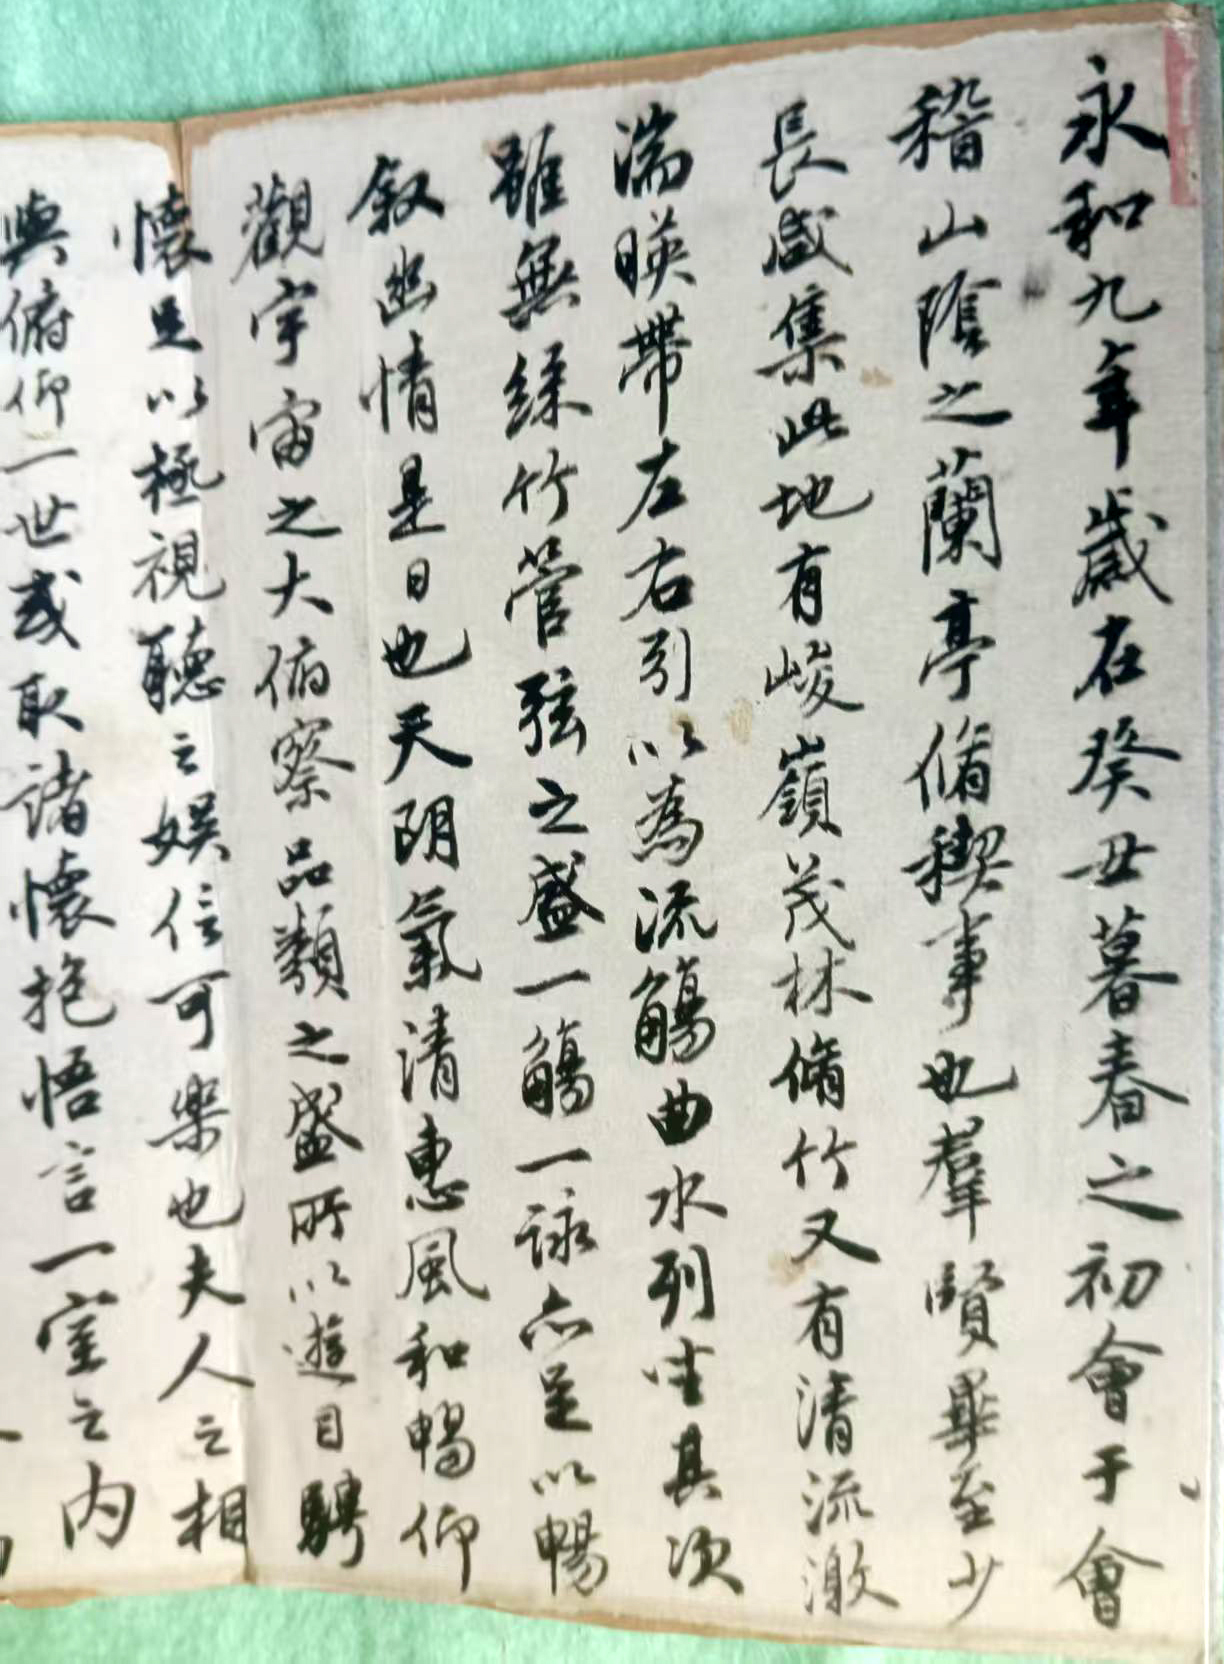 永和九年歲在癸丑暮春之初會于會
稽山陰之蘭亭脩稧事也羣賢畢至少
長咸集此地有峻嶺茂林脩竹又有清流激
湍暎帶左右引以為流觴曲水列坐其次
雖無絲竹管弦之盛一觴一詠亦足以暢
叙幽情是日也天朗氣清惠風和暢仰
觀宇宙之大俯察品類之盛所以遊目騁
懷足以極視聽之娛信可樂也夫人之相
與俯仰一世或取諸懷抱悟言一室之内